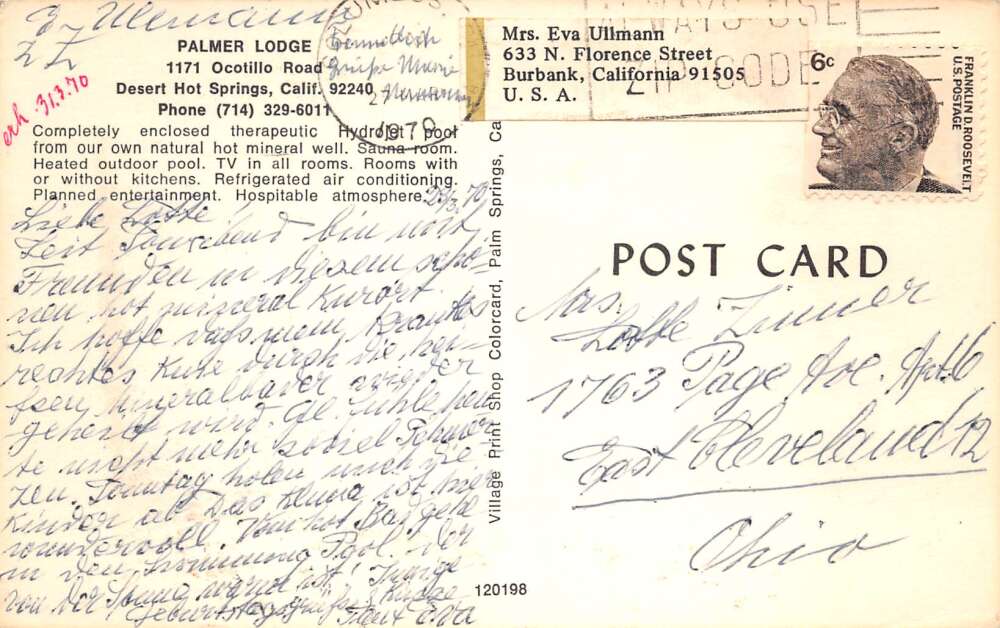 E. Ullemann
ZZ
PALMER LODGE
1171 Ocotillo Road
Desert Hot Springs, Calif. 92240
Phone (714) 329-6011
erh 31.3.70
Completely enclosed therapeutic Hydrojet pool
from our own natural hot mineral well. Sauna room.
Heated outdoor pool. TV in all rooms. Rooms with
or without kitchens. Refrigerated air conditioning.
Planned entertainment. Hospitable atmosphere.
Liebe Lotte
Seit bin mit
Freunden in diesem schö-
nen hot mineral Kurort.
Ich hoffe dass mein krankes
rechtes Knie durch die hei-
ssen Mineralbäder wieder
geheilt wird. fühle heu-
te nicht mehr soviel Schmer-
zen. Sonntag holen mich die
Kinder ab Das Klima ist hier
wundervoll. Vom hot Bad geht
in den Swimming Pool. der
von der Sonne warm ist! Innige
Geburtstagsgrüsse & Küsse
Tant Eva
1970
Mrs. Eva Ullmann
633 N. Florence Street
Burbank, California 91505
U. S. A.
ALWAYS USE
ZIP CODE
6c
FRANKLIN D. ROOSEVELT
U.S. POSTAGE
Village Print Shop Colorcard, Palm Springs, Ca
POST CARD
Mrs.
Lotte Zimmer
1763 Page Ave. Apt. 6
East Cleveland 12
Ohio
120198